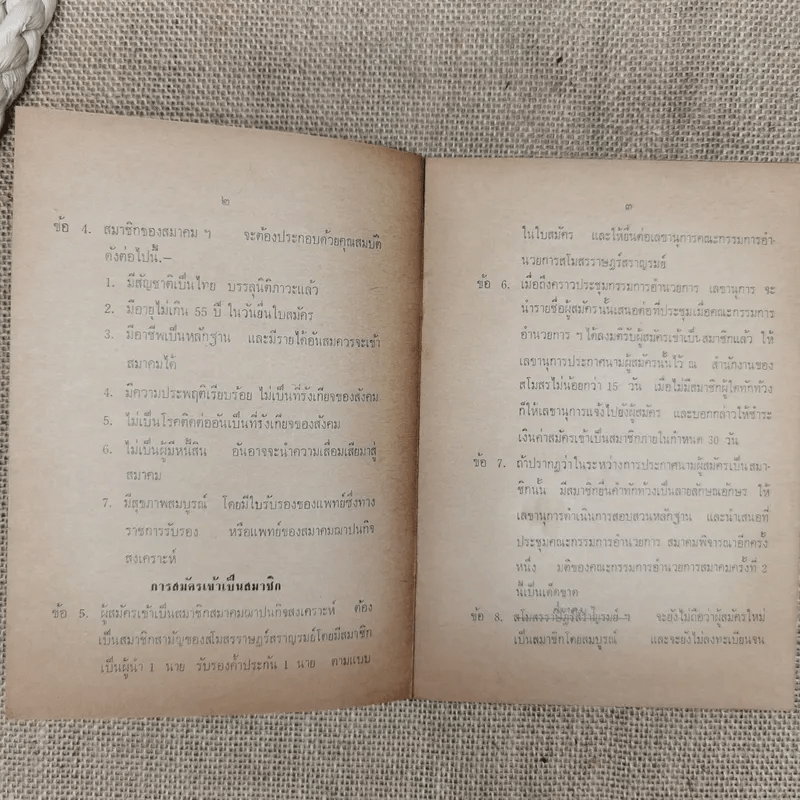 ๒
ข้อ 4. สมาชิกของสมาคม ฯ จะต้องประกอบด้วยคุณสมบัติ
ดังต่อไปนี้.—
1. มีสัญชาติเป็นไทย บรรลุนิติภาวะแล้ว
2. มีอายุไม่เกิน 55 ปี ในวันยื่นใบสมัคร
3. มีอาชีพเป็นหลักฐาน และมีรายได้อันสมควรจะเข้า
สมาคมได้
4. มีความประพฤติเรียบร้อย ไม่เป็นที่รังเกียจของสังคม
5. ไม่เป็นโรคติดต่ออันเป็นที่รังเกียจของสังคม
6. ไม่เป็นผู้มีหนี้สิน อันอาจจะนำความเสื่อมเสียมาสู่
สมาคม
7. มีสุขภาพสมบูรณ์ โดยมีใบรับรองของแพทย์ซึ่งทาง
ราชการรับรอง หรือแพทย์ของสมาคมฌาปนกิจ
สงเคราะห์
การสมัครเข้าเป็นสมาชิก
ข้อ 5. ผู้สมัครเข้าเป็นสมาชิกสมาคมฌาปนกิจสงเคราะห์ ต้อง
เป็นสมาชิกสามัญของสโมสรราษฎร์สราญรมย์โดยมีสมาชิก
เป็นผู้นำ 1 นาย รับรองค้ำประกัน 1 นาย ตามแบบ
๓
ในใบสมัคร และให้ยื่นต่อเลขานุการคณะกรรมการอำ-
นวยการสโมสรราษฎร์สราญรมย์
ข้อ 6. เมื่อถึงคราวประชุมกรรมการอำนวยการ เลขานุการ จะ
นำรายชื่อผู้สมัครนั้นเสนอต่อที่ประชุมเมื่อคณะกรรมการ
อำนวยการ ฯ ได้ลงมติรับผู้สมัครเข้าเป็นสมาชิกแล้ว ให้
เลขานุการประกาศนามผู้สมัครนั้นไว้ ณ สำนักงานของ
สโมสรไม่น้อยกว่า 15 วัน เมื่อไม่มีสมาชิกผู้ใดทักท้วง
ก็ให้เลขานุการแจ้งไปยังผู้สมัคร และบอกกล่าวให้ชำระ
เงินค่าสมัครเข้าเป็นสมาชิกภายในกำหนด 30 วัน
ข้อ 7. ถ้าปรากฏว่าในระหว่างการประกาศนามผู้สมัครเป็นสมา-
ชิกนั้น มีสมาชิกยื่นคำทักท้วงเป็นลายลักษณอักษร ให้
เลขานุการดำเนินการสอบสวนหลักฐาน และนำเสนอที่
ประชุมคณะกรรมการอำนวยการ สมาคมพิจารณาอีกครั้ง
หนึ่ง มติของคณะกรรมการอำนวยการสมาคมครั้งที่ 2
นี้เป็นเด็ดขาด
ข้อ 8. สโมสรราษฎร์สราญรมย์ ฯ จะยังไม่ถือว่าผู้สมัครใหม่
เป็นสมาชิกโดยสมบูรณ์ และจะยังไม่ลงทะเบียนจน